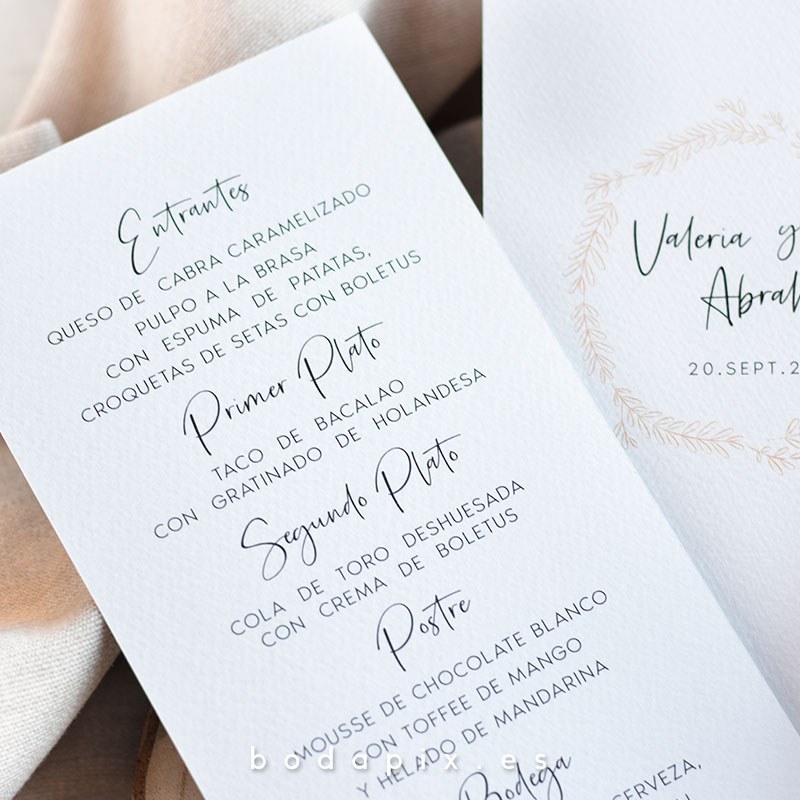 Entrantes
QUESO DE CABRA CARAMELIZADO
PULPO A LA BRASA
CON ESPUMA DE PATATAS,
CROQUETAS DE SETAS CON BOLETUS
Primer Plato
TACO DE BACALAO
CON GRATINADO DE HOLANDESA
Segundo Plato
COLA DE TORO DESHUESADA
CON CREMA DE BOLETUS
Postre
MOUSSE DE CHOCOLATE BLANCO
CON TOFFEE DE MANGO
Y HELADO DE MANDARINA
Bodega
CERVEZA,
Valeria y
20.SEPT.2
bodapix.es